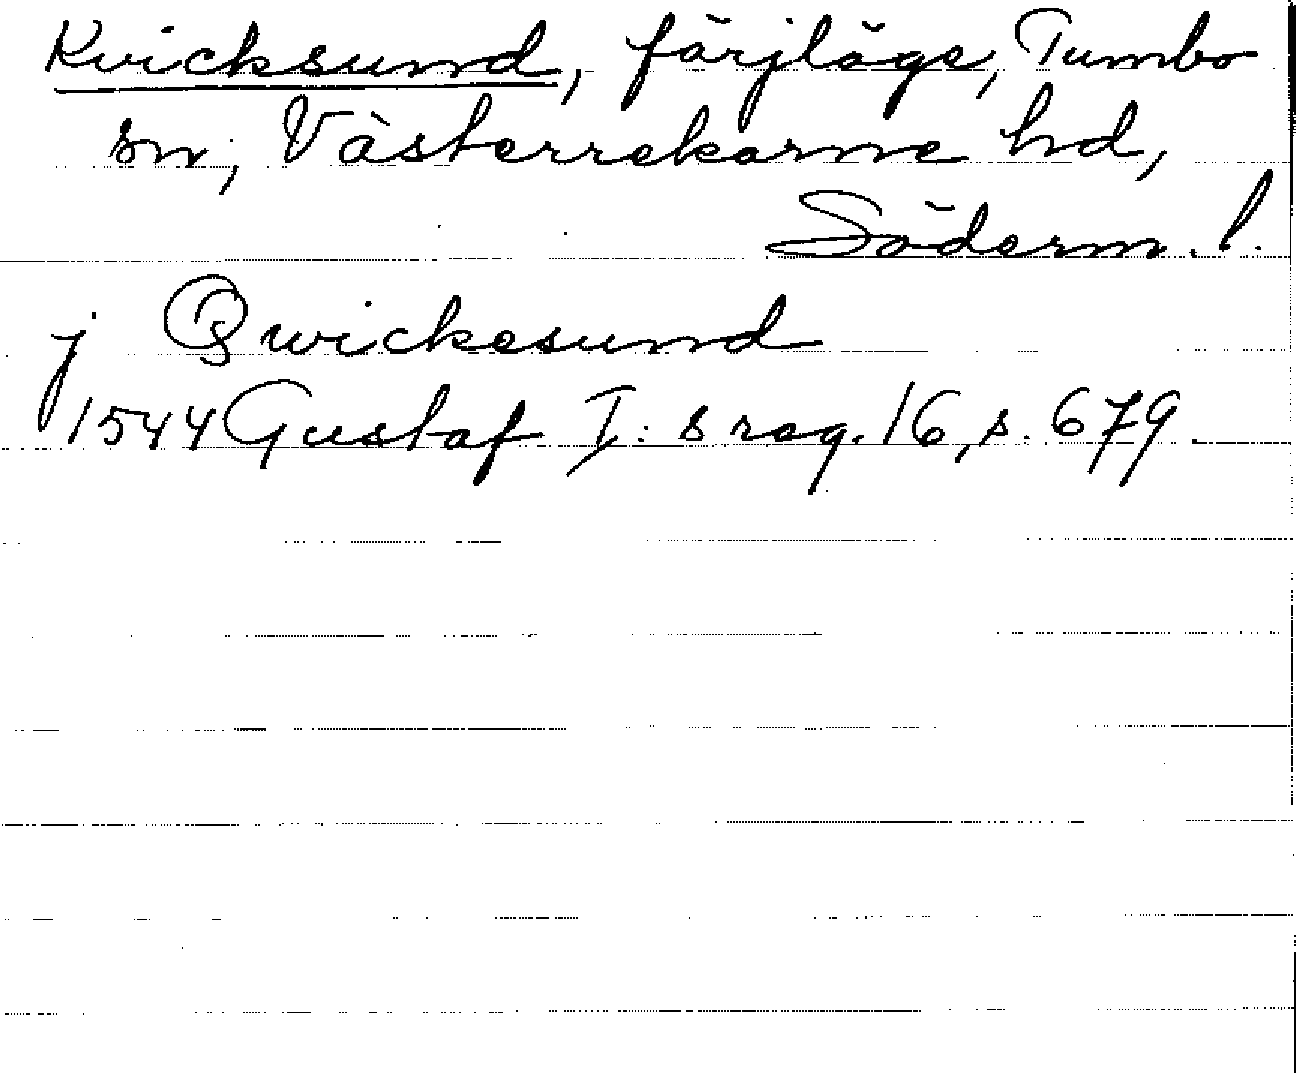 Kvicksund, färjläge, Tumbo
sn, Västerrekarne hd,
Söderm. l.
j Qwickesund
1544 Gustaf I: s reg. 16, s. 679.